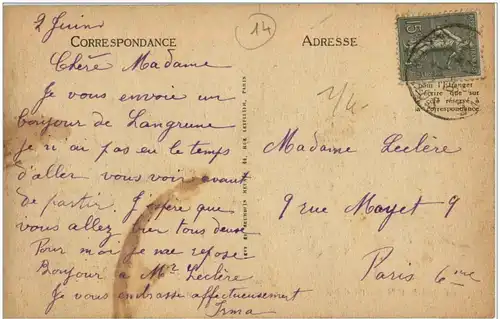 2 Juin
14
CORRESPONDANCE
ADRESSE
15
Chère Madame
Je vous envoie un
bonjour de Langrune
je n'ai pas eu le temps
d'aller vous voir avant
de partir. J'espère que
vous allez bien tous deux
Pour moi je me repose
Bonjour à Mr Leclère
Je vous embrasse affectueusement
Irma
pour l'Etranger
écrire que sur
côté réservé à
correspondance
Madame Leclère
9 rue Mayet 9
Paris 6me